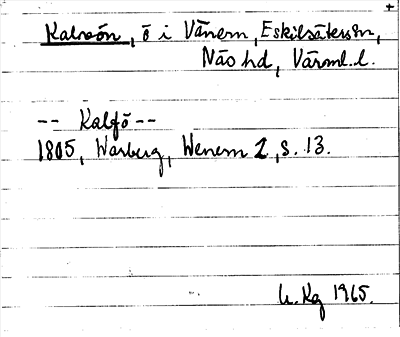 +
Kalvön, ö i Vänern, Eskilsäters sn,
Näs hd, Värml. l.
-- Kalfö --
1805, Warberg, Wenern 2, s. 13.
Kg 1965.